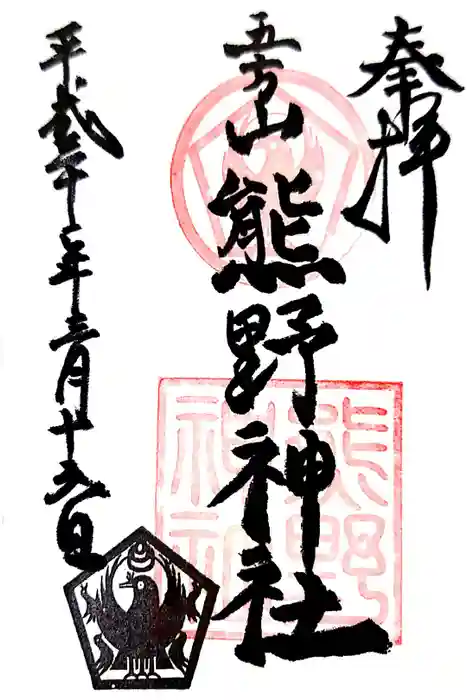 奉拝
五方山熊野神社
平成二十七年三月十日
熊野
神社